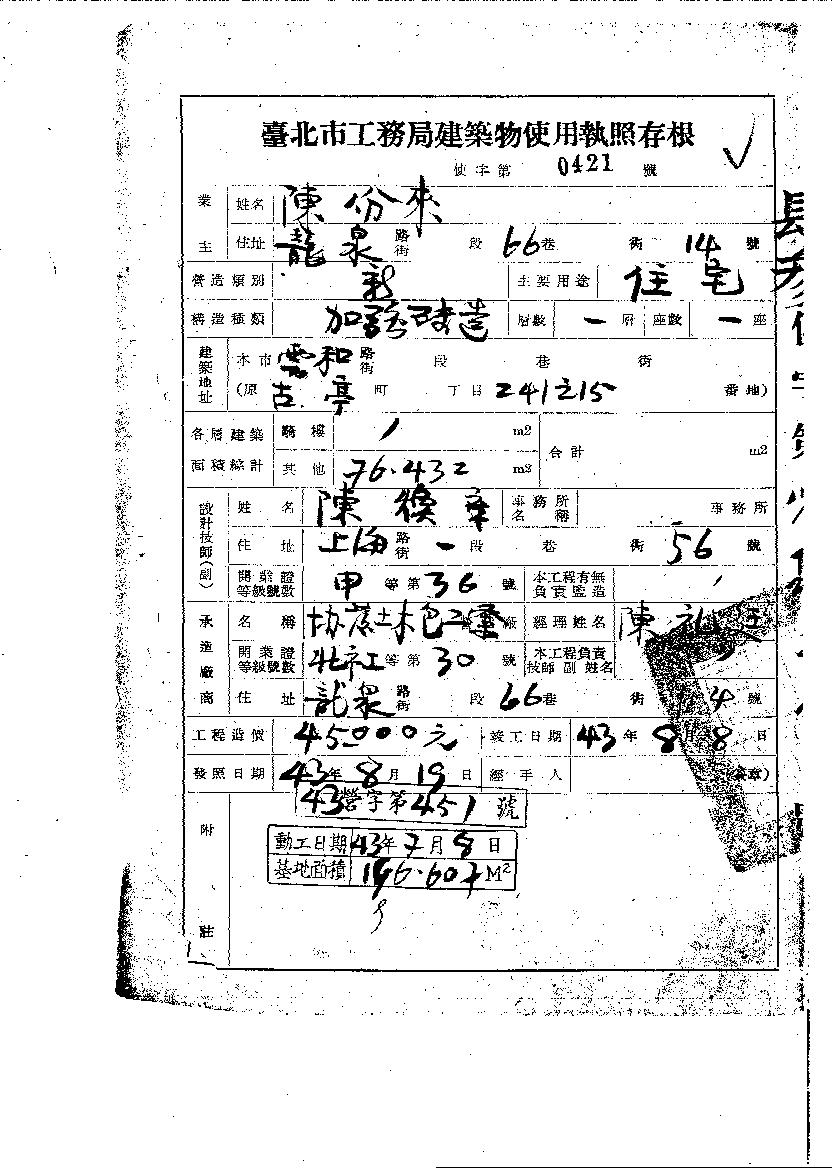 臺北市工務局建築物使用執照存根
使字第 0421 號
業主 姓名 陳份來
住址 龍泉 路街 段 66巷 街 14 號
營造類別 新 主要用途 住宅
構造種類 加強磚造 層數 一 層 座數 一 座
建築地址 本市 雲和 路街 段 巷 街
(原 古亭 町 丁目 241之15 番地)
各層建築面積總計 騎樓 / m2 合計 m2
其他 76.432 m2
設計技師(副) 姓名 陳煥 事務所名稱 事務所
住址 上海 路街 一段 巷 街 56 號
開業證等級號數 甲 等第 36 號 本工程有無負責監造
承造廠商 名稱 土木包工業 廠 經理姓名 陳
開業證等級號數 北市工 等第 30 號 本工程負責技師副姓名
住址 龍泉 路街 段 66巷 街 4 號
工程造價 45000元 竣工日期 43年 8月 8日
發照日期 43年 8月 19日 經手人 (蓋章)
43營字第451號
附註
動工日期 43年7月8日
基地面積 196.607 M²